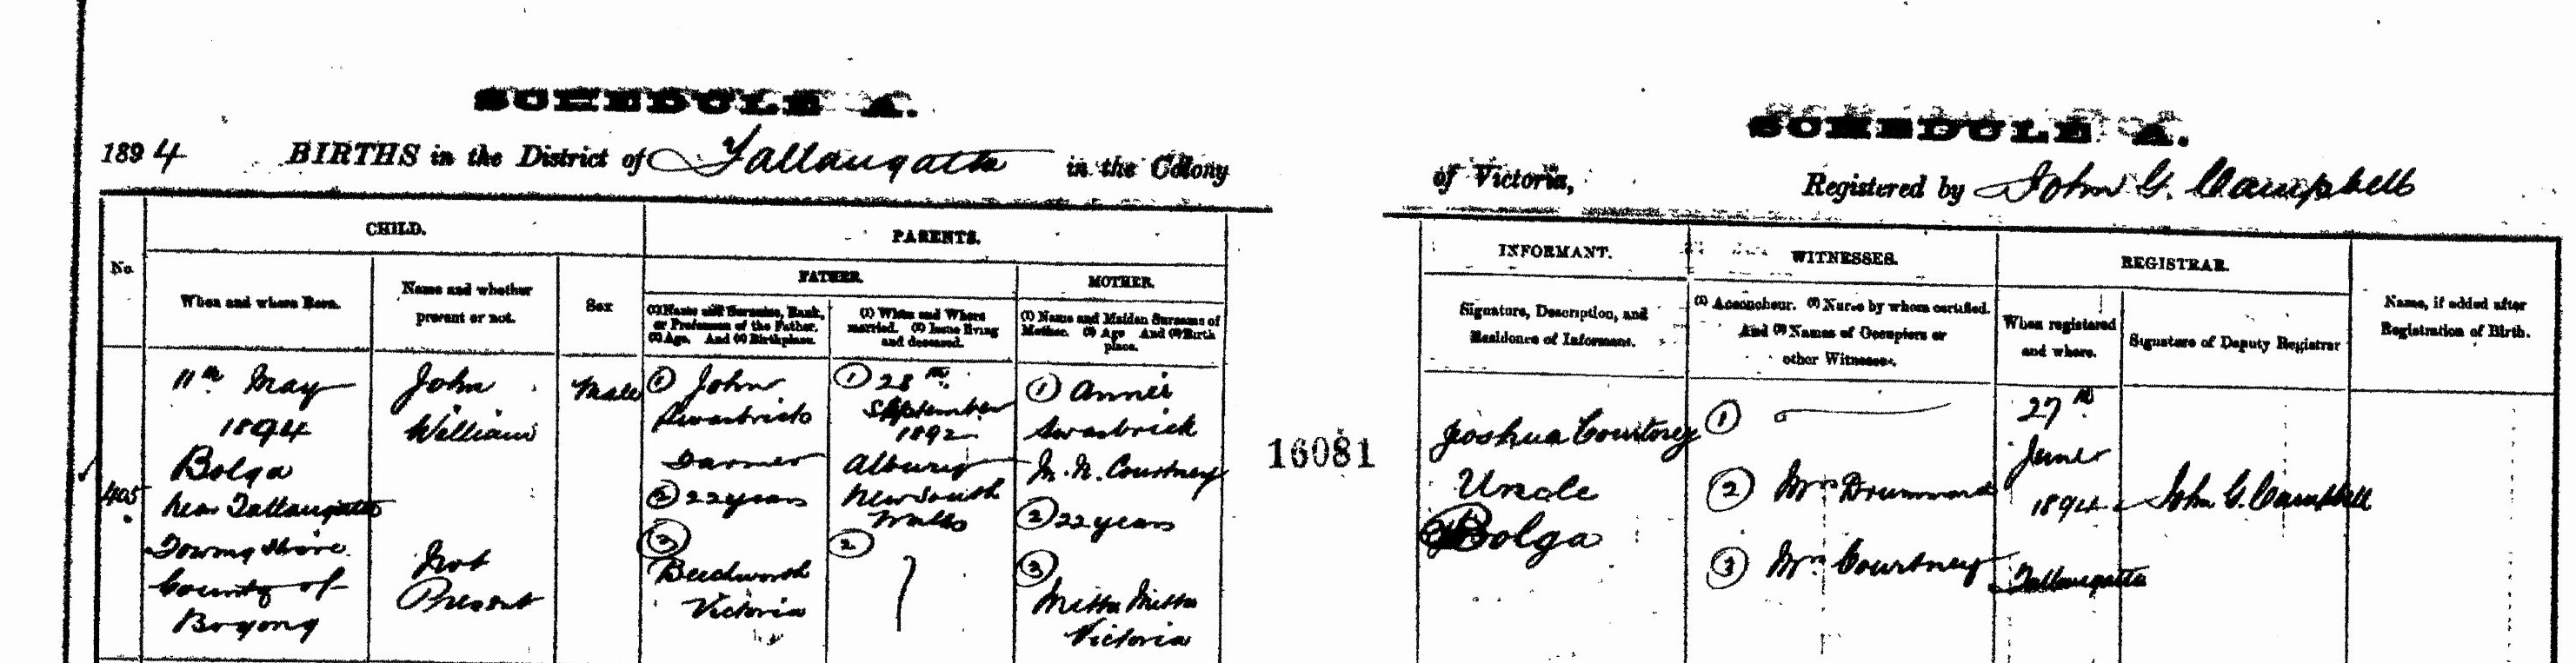 SCHEDULE A.
SCHEDULE A.
1894 BIRTHS in the District of Tallangatta in the Colony
of Victoria, Registered by John G. Campbell
No.
CHILD.
When and where Born.
Name and whether
present or not.
Sex
PARENTS.
FATHER.
(1) Name and Surname, Rank,
or Profession of the Father.
(2) Age. And (3) Birthplace.
(1) When and Where
married. (2) Issue living
and deceased.
MOTHER.
(1) Name and Maiden Surname of
Mother. (2) Age And (3) Birth
place.
INFORMANT.
Signature, Description, and
Residence of Informant.
WITNESSES.
(1) Accoucheur. (2) Nurse by whom certified.
And (3) Names of Occupiers or
other Witnesses.
REGISTRAR.
When registered
and where.
Signature of Deputy Registrar
Name, if added after
Registration of Birth.
405
11th May
1894
Bolga
near Tallangatta
Towong Shire
County of
Bogong
John
William
Not
Present
Male
(1) John
Swarbrick
Farmer
(2) 22 years
(3)
Beechworth
Victoria
(1) 28th
September
1892
Albury
New South
Wales
(2)
(1) Annie
Swarbrick
M. N. Courtney
(2) 22 years
(3)
Mitta Mitta
Victoria
16081
Joshua Courtney
Uncle
Bolga
(1)
(2) Mrs Drummond
(3) Mrs Courtney
27th
June
1894
Tallangatta
John G. Campbell